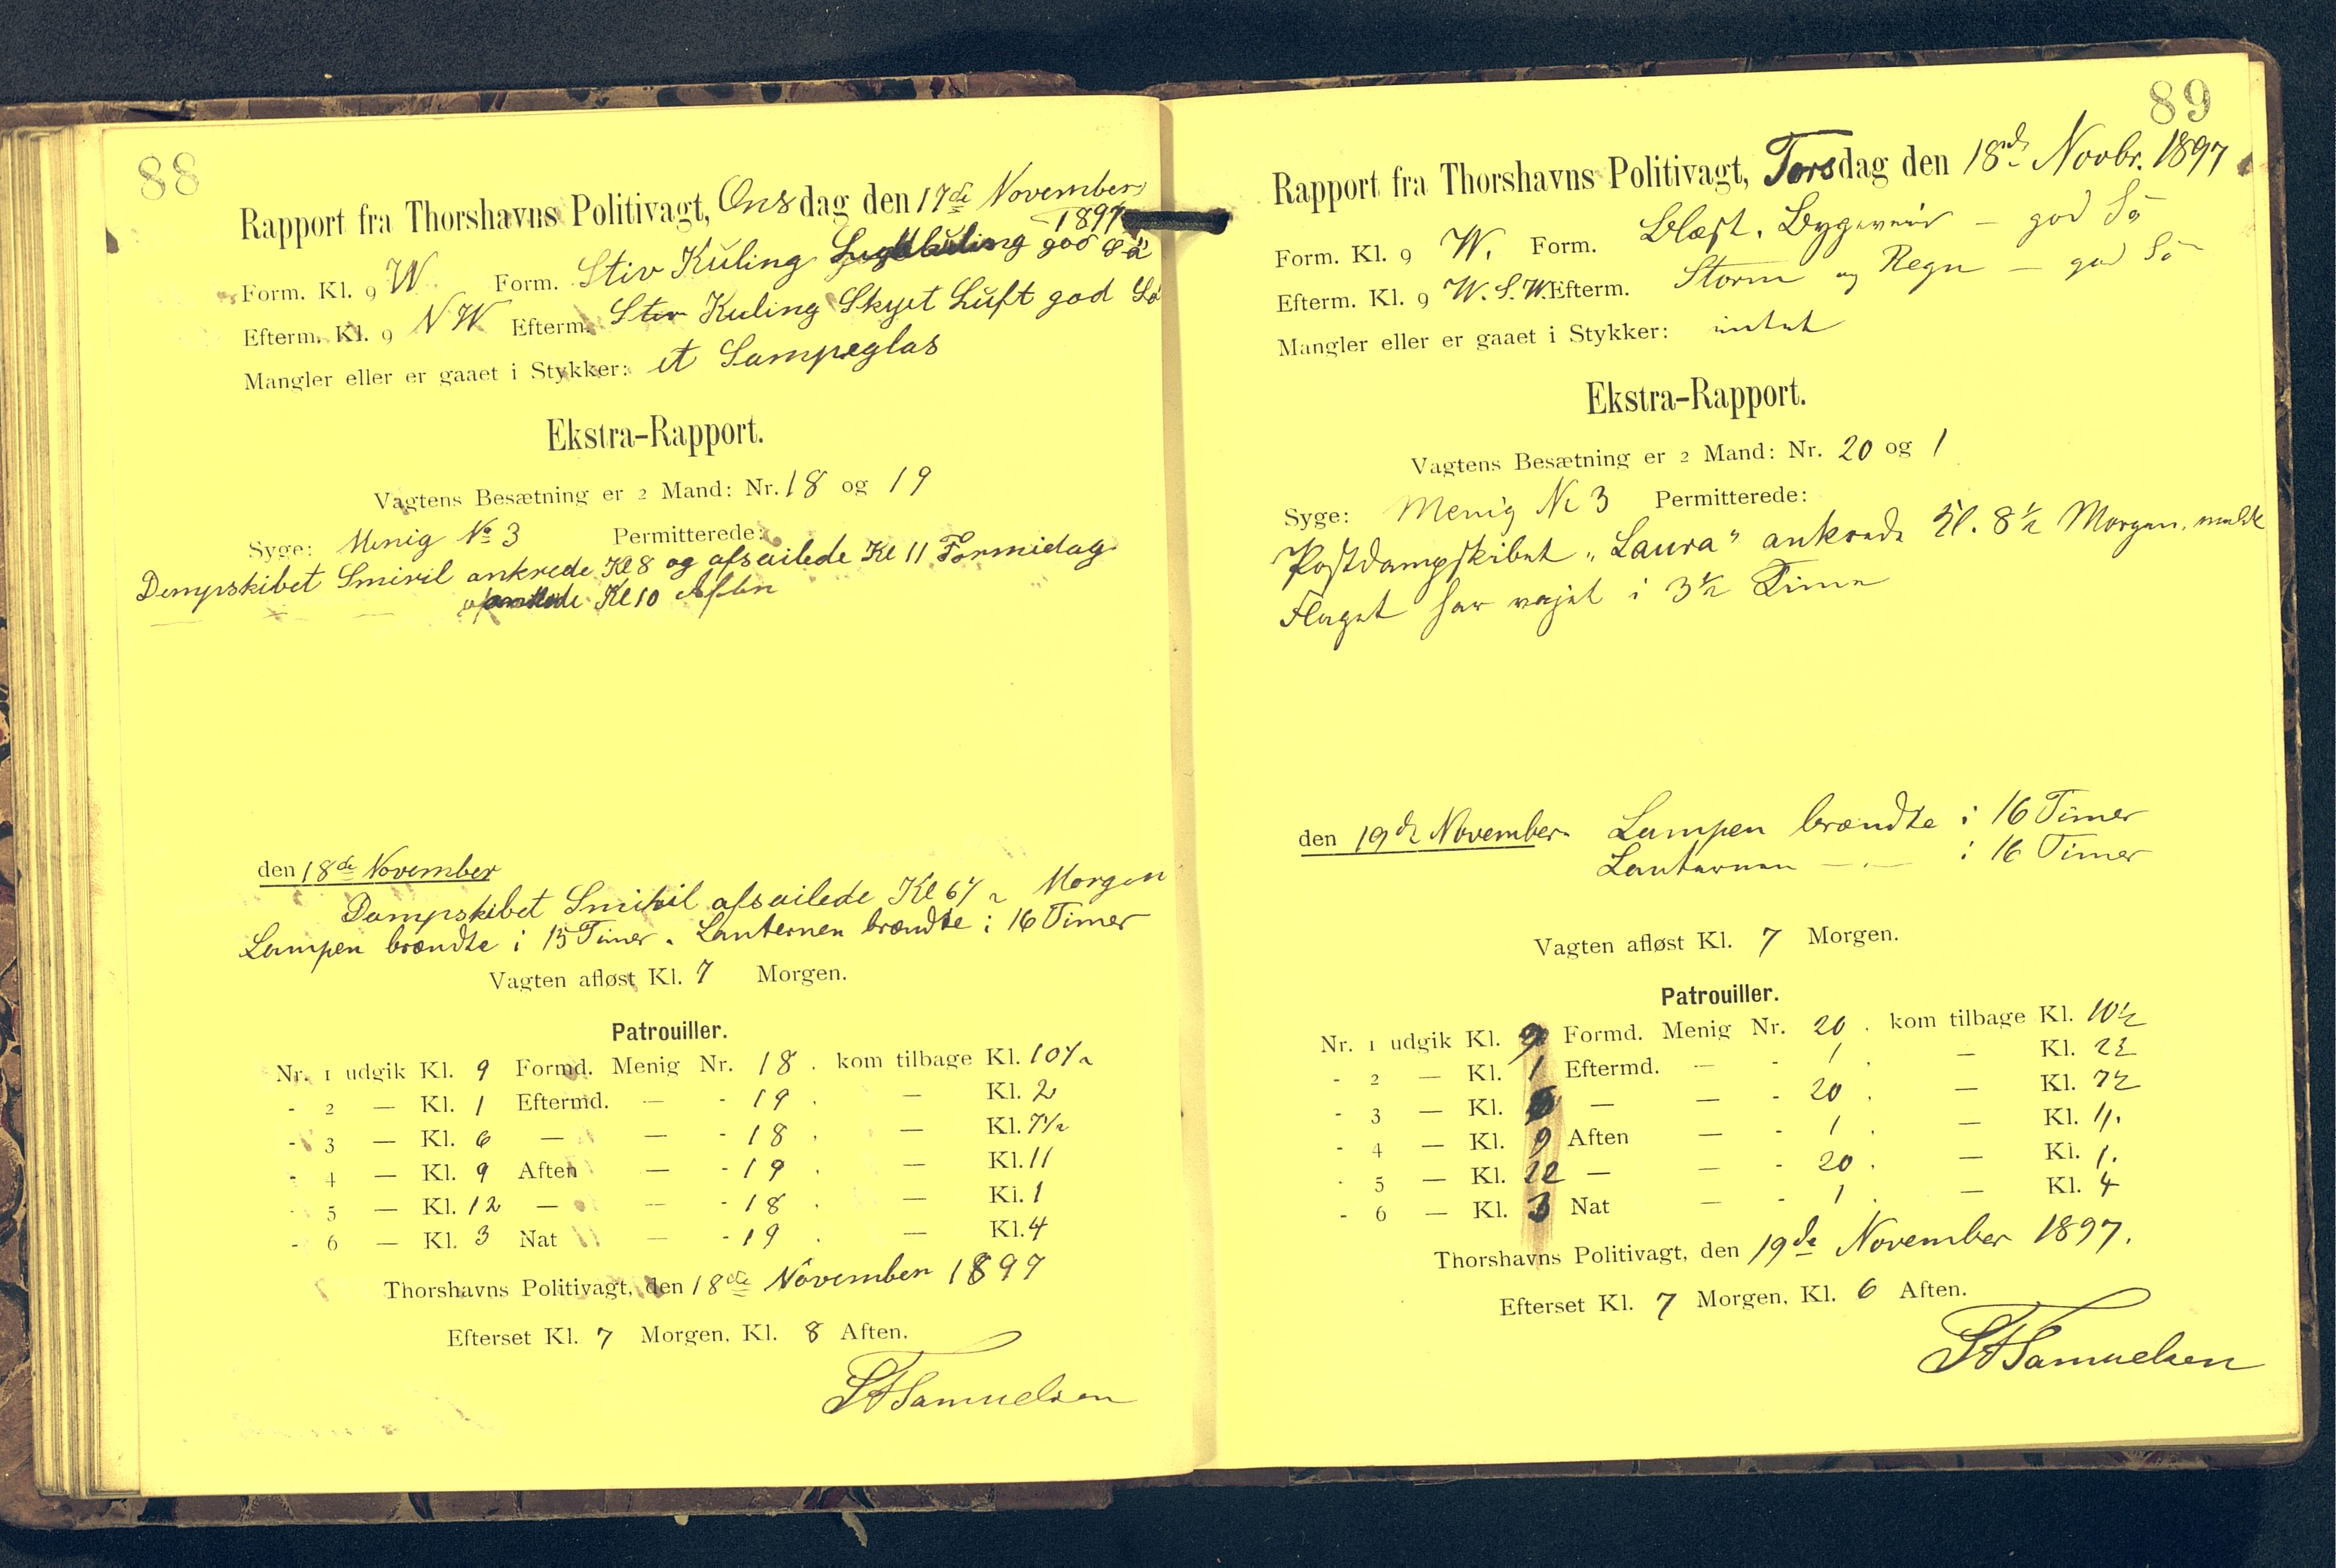 88
Rapport fra Thorshavns Politivagt, Onsdag den 17de November
1897
Form. Kl. 9 W. Form. Stiv Kuling god Sö
Efterm. Kl. 9 NW Efterm. Stiv Kuling Skyet Luft god Sö
Mangler eller er gaaet i Stykker: et Lampeglas
Ekstra-Rapport.
Vagtens Besætning er 2 Mand: Nr. 18 og 19
Syge: Menig No 3 Permitterede:
Dampskibet Smiril ankrede Kl 8 og afsailede Kl 11 Formidag
— — — Kl 10 Aften
den 18de November
Dampskibet Smiril afsailede Kl 6½ Morgen
Lampen brændte i 15 Timer. Lanternen brændte i 16 Timer
Vagten afløst Kl. 7 Morgen.
Patrouiller.
Nr. 1 udgik Kl. 9 Formd. Menig Nr. 18 . kom tilbage Kl. 10½
- 2 — Kl. 1 Eftermd. — - 19 . — Kl. 2
- 3 — Kl. 6 — — - 18 . — Kl. 7½
- 4 — Kl. 9 Aften — - 19 . — Kl. 11
- 5 — Kl. 12 — — - 18 . — Kl. 1
- 6 — Kl. 3 Nat — - 19 . — Kl. 4
Thorshavns Politivagt, den 18de November 1897
Efterset Kl. 7 Morgen, Kl. 8 Aften.
Samuelsen
89
Rapport fra Thorshavns Politivagt, Torsdag den 18de Novbr. 1897
Form. Kl. 9 W. Form. Blæst. Bygeveir — god Sö
Efterm. Kl. 9 W.S.W. Efterm. Storm og Regn — god Sö
Mangler eller er gaaet i Stykker: intet
Ekstra-Rapport.
Vagtens Besætning er 2 Mand: Nr. 20 og 1
Syge: Menig Nr 3 Permitterede:
Postdampskibet „Laura" ankrede Kl. 8½ Morgen.
Flaget har vajet i 3½ Time
den 19de November. Lampen brændte i 16 Timer
Lanternen — . — i 16 Timer
Vagten afløst Kl. 7 Morgen.
Patrouiller.
Nr. 1 udgik Kl. 9 Formd. Menig Nr. 20 . kom tilbage Kl. 10½
- 2 — Kl. 1 Eftermd. — - 1 . — Kl. 2½
- 3 — Kl. 6 — — - 20 . — Kl. 7½
- 4 — Kl. 9 Aften — - 1 . — Kl. 11.
- 5 — Kl. 12 — — - 20 . — Kl. 1.
- 6 — Kl. 3 Nat — - 1 . — Kl. 4
Thorshavns Politivagt, den 19de November 1897.
Efterset Kl. 7 Morgen, Kl. 6 Aften.
Samuelsen